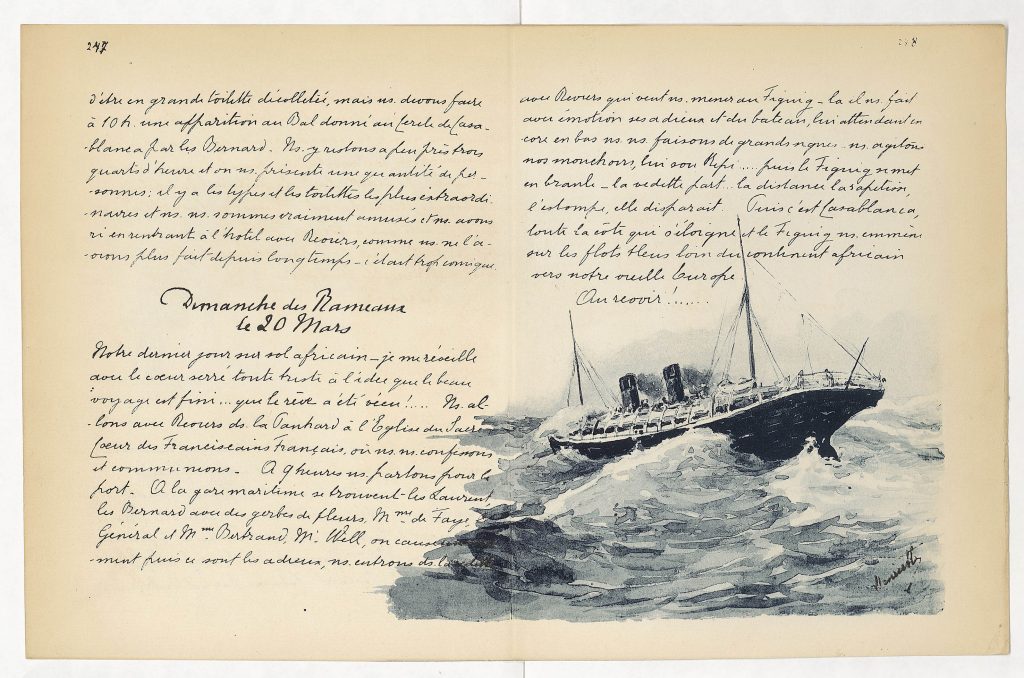 247
d'être en grande toilette décolletée, mais ns. devons faire
à 10 h. une apparition au Bal donné au Cercle de Casa-
blanca par les Bernard. Ns. y restons a peu près trois
quarts d'heure et on ns. présente une quantité de per-
sonnes; il y a les types et les toilettes les plus extraordi-
naires et ns. ns. sommes vraiment amusés et ns. avons
ri en rentrant à l'hotel avec Reours, comme ns. ne l'a-
vions plus fait depuis longtemps - c'était trop comique.
Dimanche des Rameaux
le 20 Mars
Notre dernier jour sur sol africain - je me réveille
avec le cœur serré toute triste à l'idée que le beau
voyage est fini... que le rêve a été vécu!.... Ns. al-
lons avec Reours ds. la Panhard à l'Eglise du Sacré
Cœur des Franciscains Français, où ns. ns. confessons
et communions - A 9 heures ns. partons pour le
port. A la gare maritime se trouvent les Laurent
les Bernard avec des gerbes de fleurs, Mme de Faye,
Général et Mme Bertrand, Mr. Well, on cause
ment puis ce sont les adieux, ns. entrons ds. la
248
avec Reours qui vent ns. mener au Figuig - la il ns. fait
avec émotion ses adieux et du bateau, lui attendant en
core en bas ns. ns. faisons de grands signes - ns. agitons
nos mouchoirs, lui son Kepi... puis le Figuig se met
en branle - la vedette part... la distance la rapetisse
l'estompe, elle disparait. Puis c'est Casablanca,
toute la cote qui s'éloigne et le Figuig ns. emmène
sur les flots bleus loin du continent africain
vers notre vieille Europe
Au revoir!......